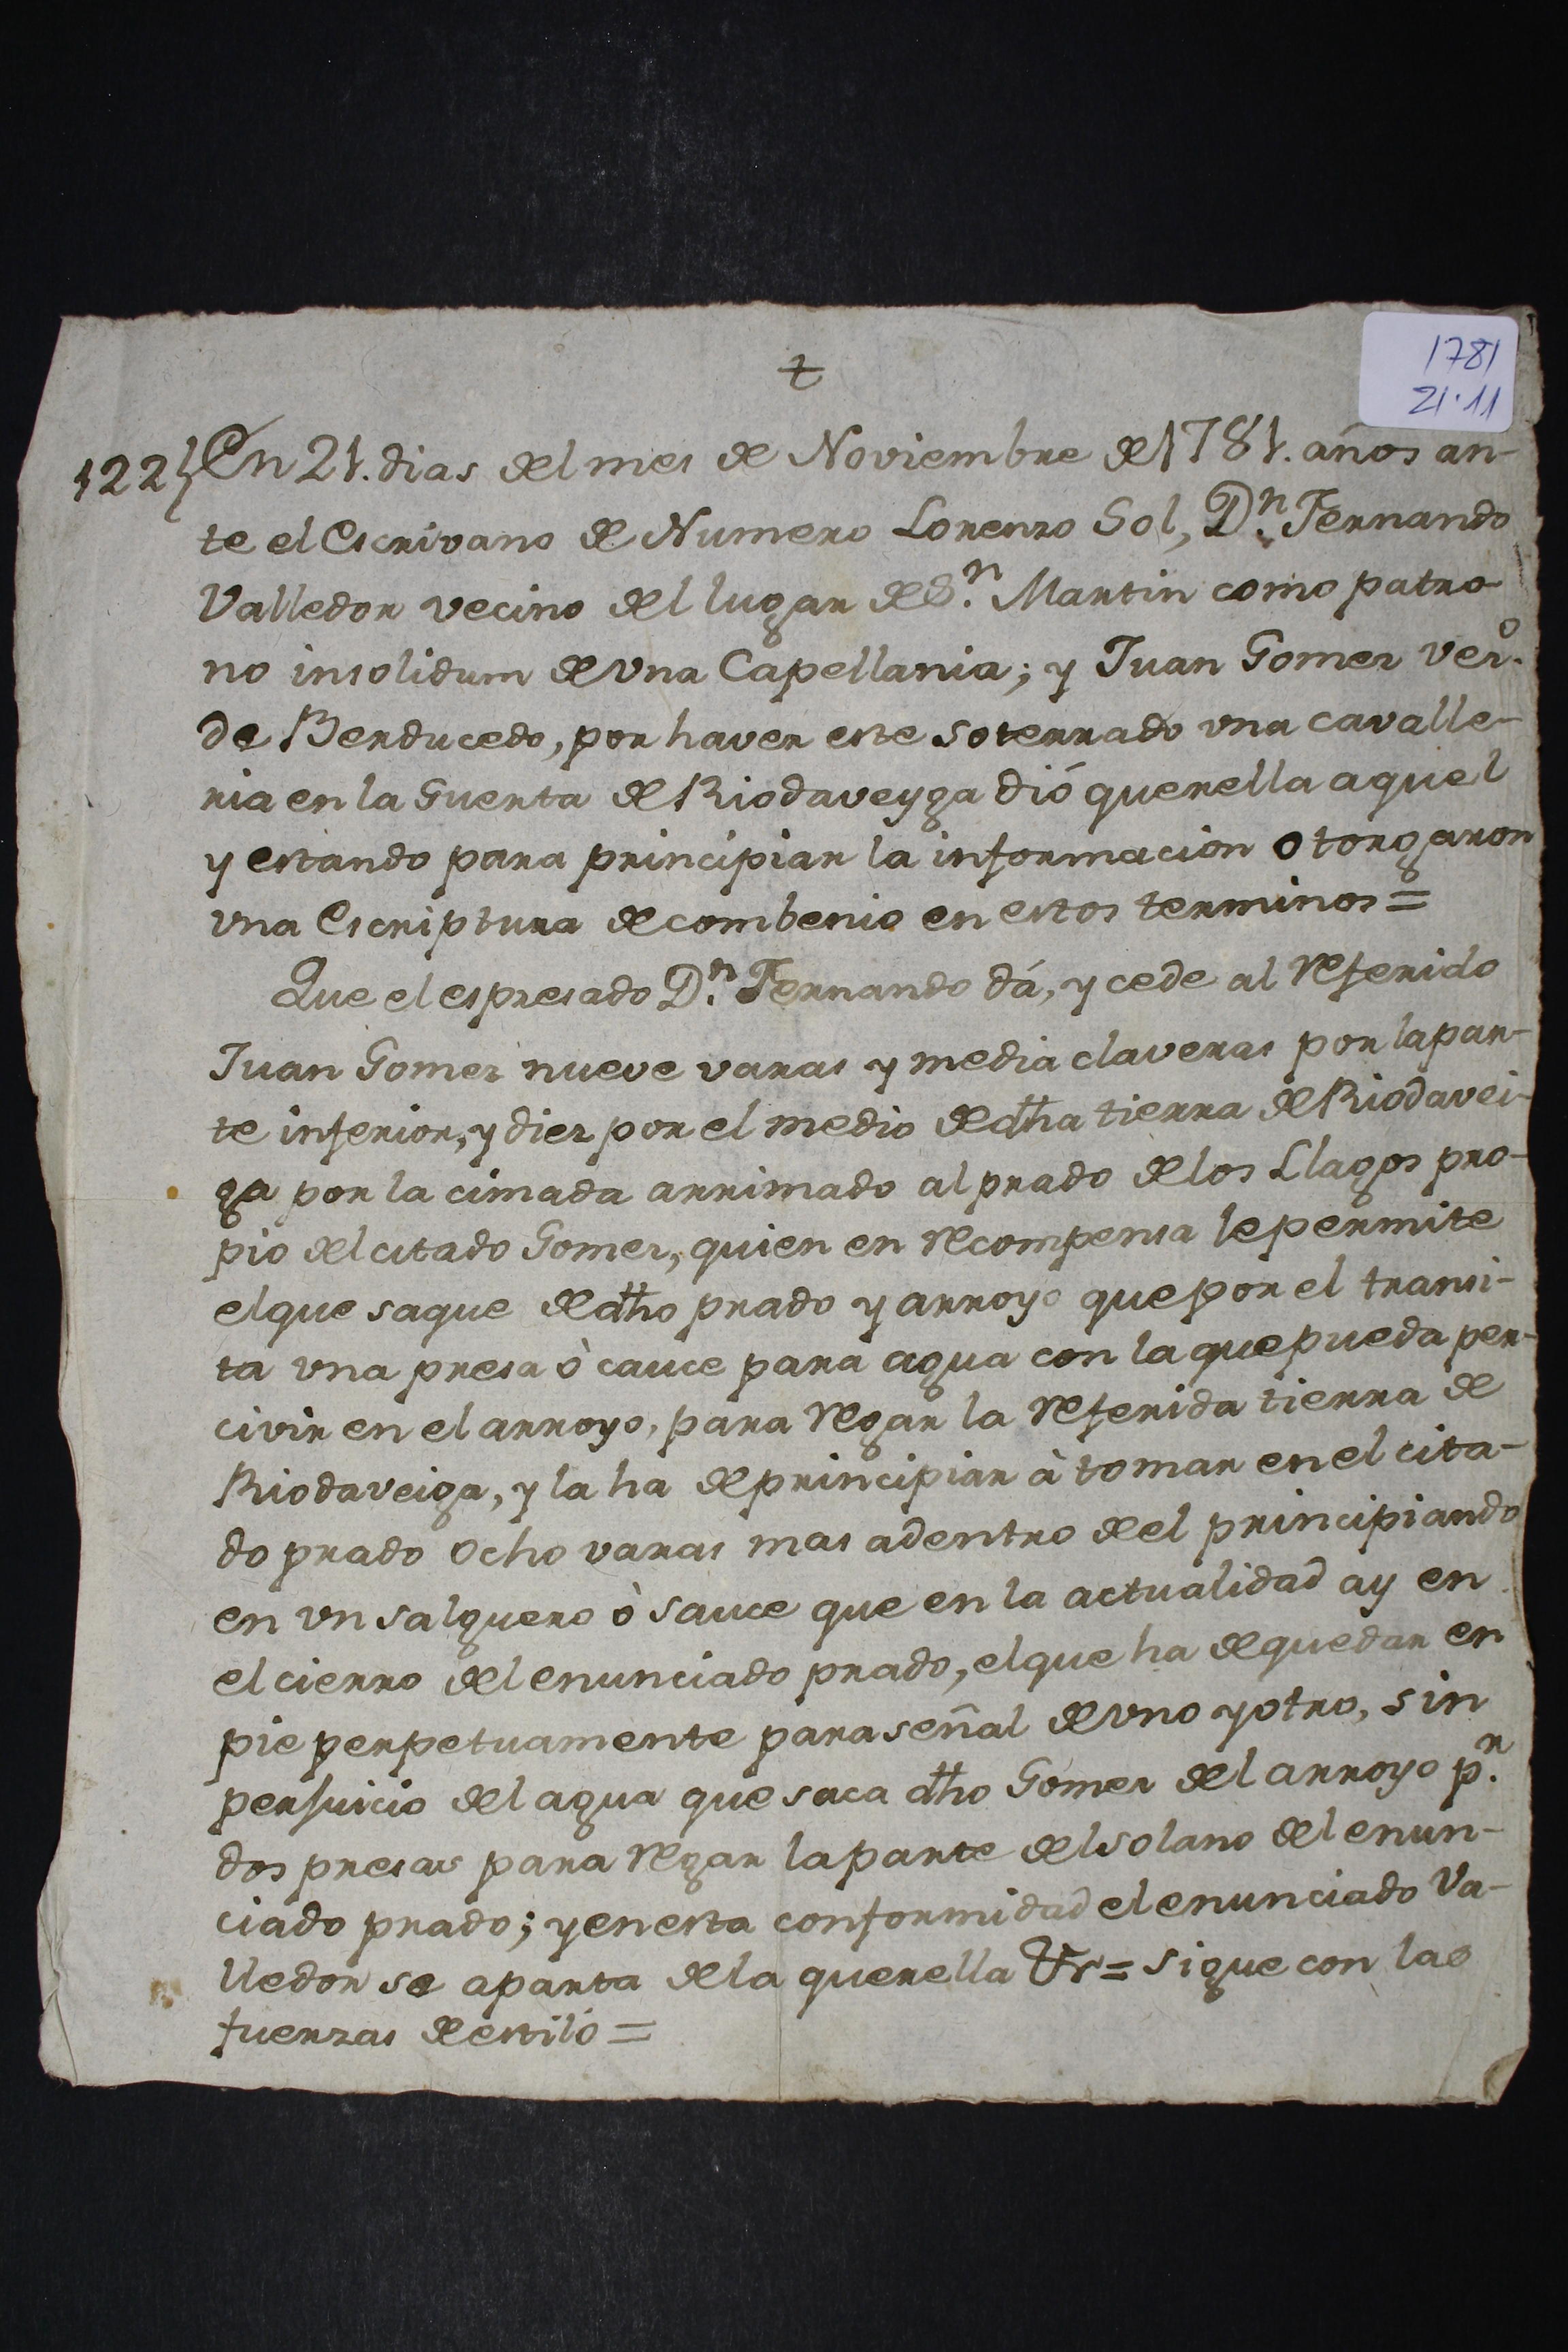 1781
21·11
122} En 21. dias del mes de Noviembre de 1781. años an-
te el Escrivano de Numero Lorenzo Sol, Dⁿ. Fernando
Valledor vecino del lugar de Sⁿ. Martin como patro-
no insolidum de vna Capellania; y Juan Gomez vezº.
de Berducedo, por haver este soterrado vna cavalle-
ria en la Guerta de Riodaveyga dió querella aquel
y estando para principiar la informacion otorgaron
vna Escriptura de combenio en estos terminos=
Que el espresado Dⁿ. Fernando dá, y cede al referido
Juan Gomez nueve varas y media claveras por la par-
te inferior, y diez por el medio de dha tierra de Riodavei-
ga por la cimada arrimado al prado de los Llagos pro-
pio del citado Gomez, quien en recompensa le permite
el que saque de dho prado y arroyo que por el transi-
ta vna presa ò cauce para agua con la que pueda per-
civir en el arroyo, para regar la referida tierra de
Riodaveiga, y la ha de principiar à tomar en el cita-
do prado ocho varas mas adentro de el principiando
en vn salguero ò sauce que en la actualidad ay en
el cierro del enunciado prado, el que ha de quedar en
pie perpetuamente para señal de vno y otro, sin
perjuicio del agua que saca dho Gomez del arroyo pʳ.
dos presas para regar la parte del solano del enun-
ciado prado; y en esta conformidad el enunciado Va-
lledor se aparta de la querella = sigue con las
fuerzas de estilo=